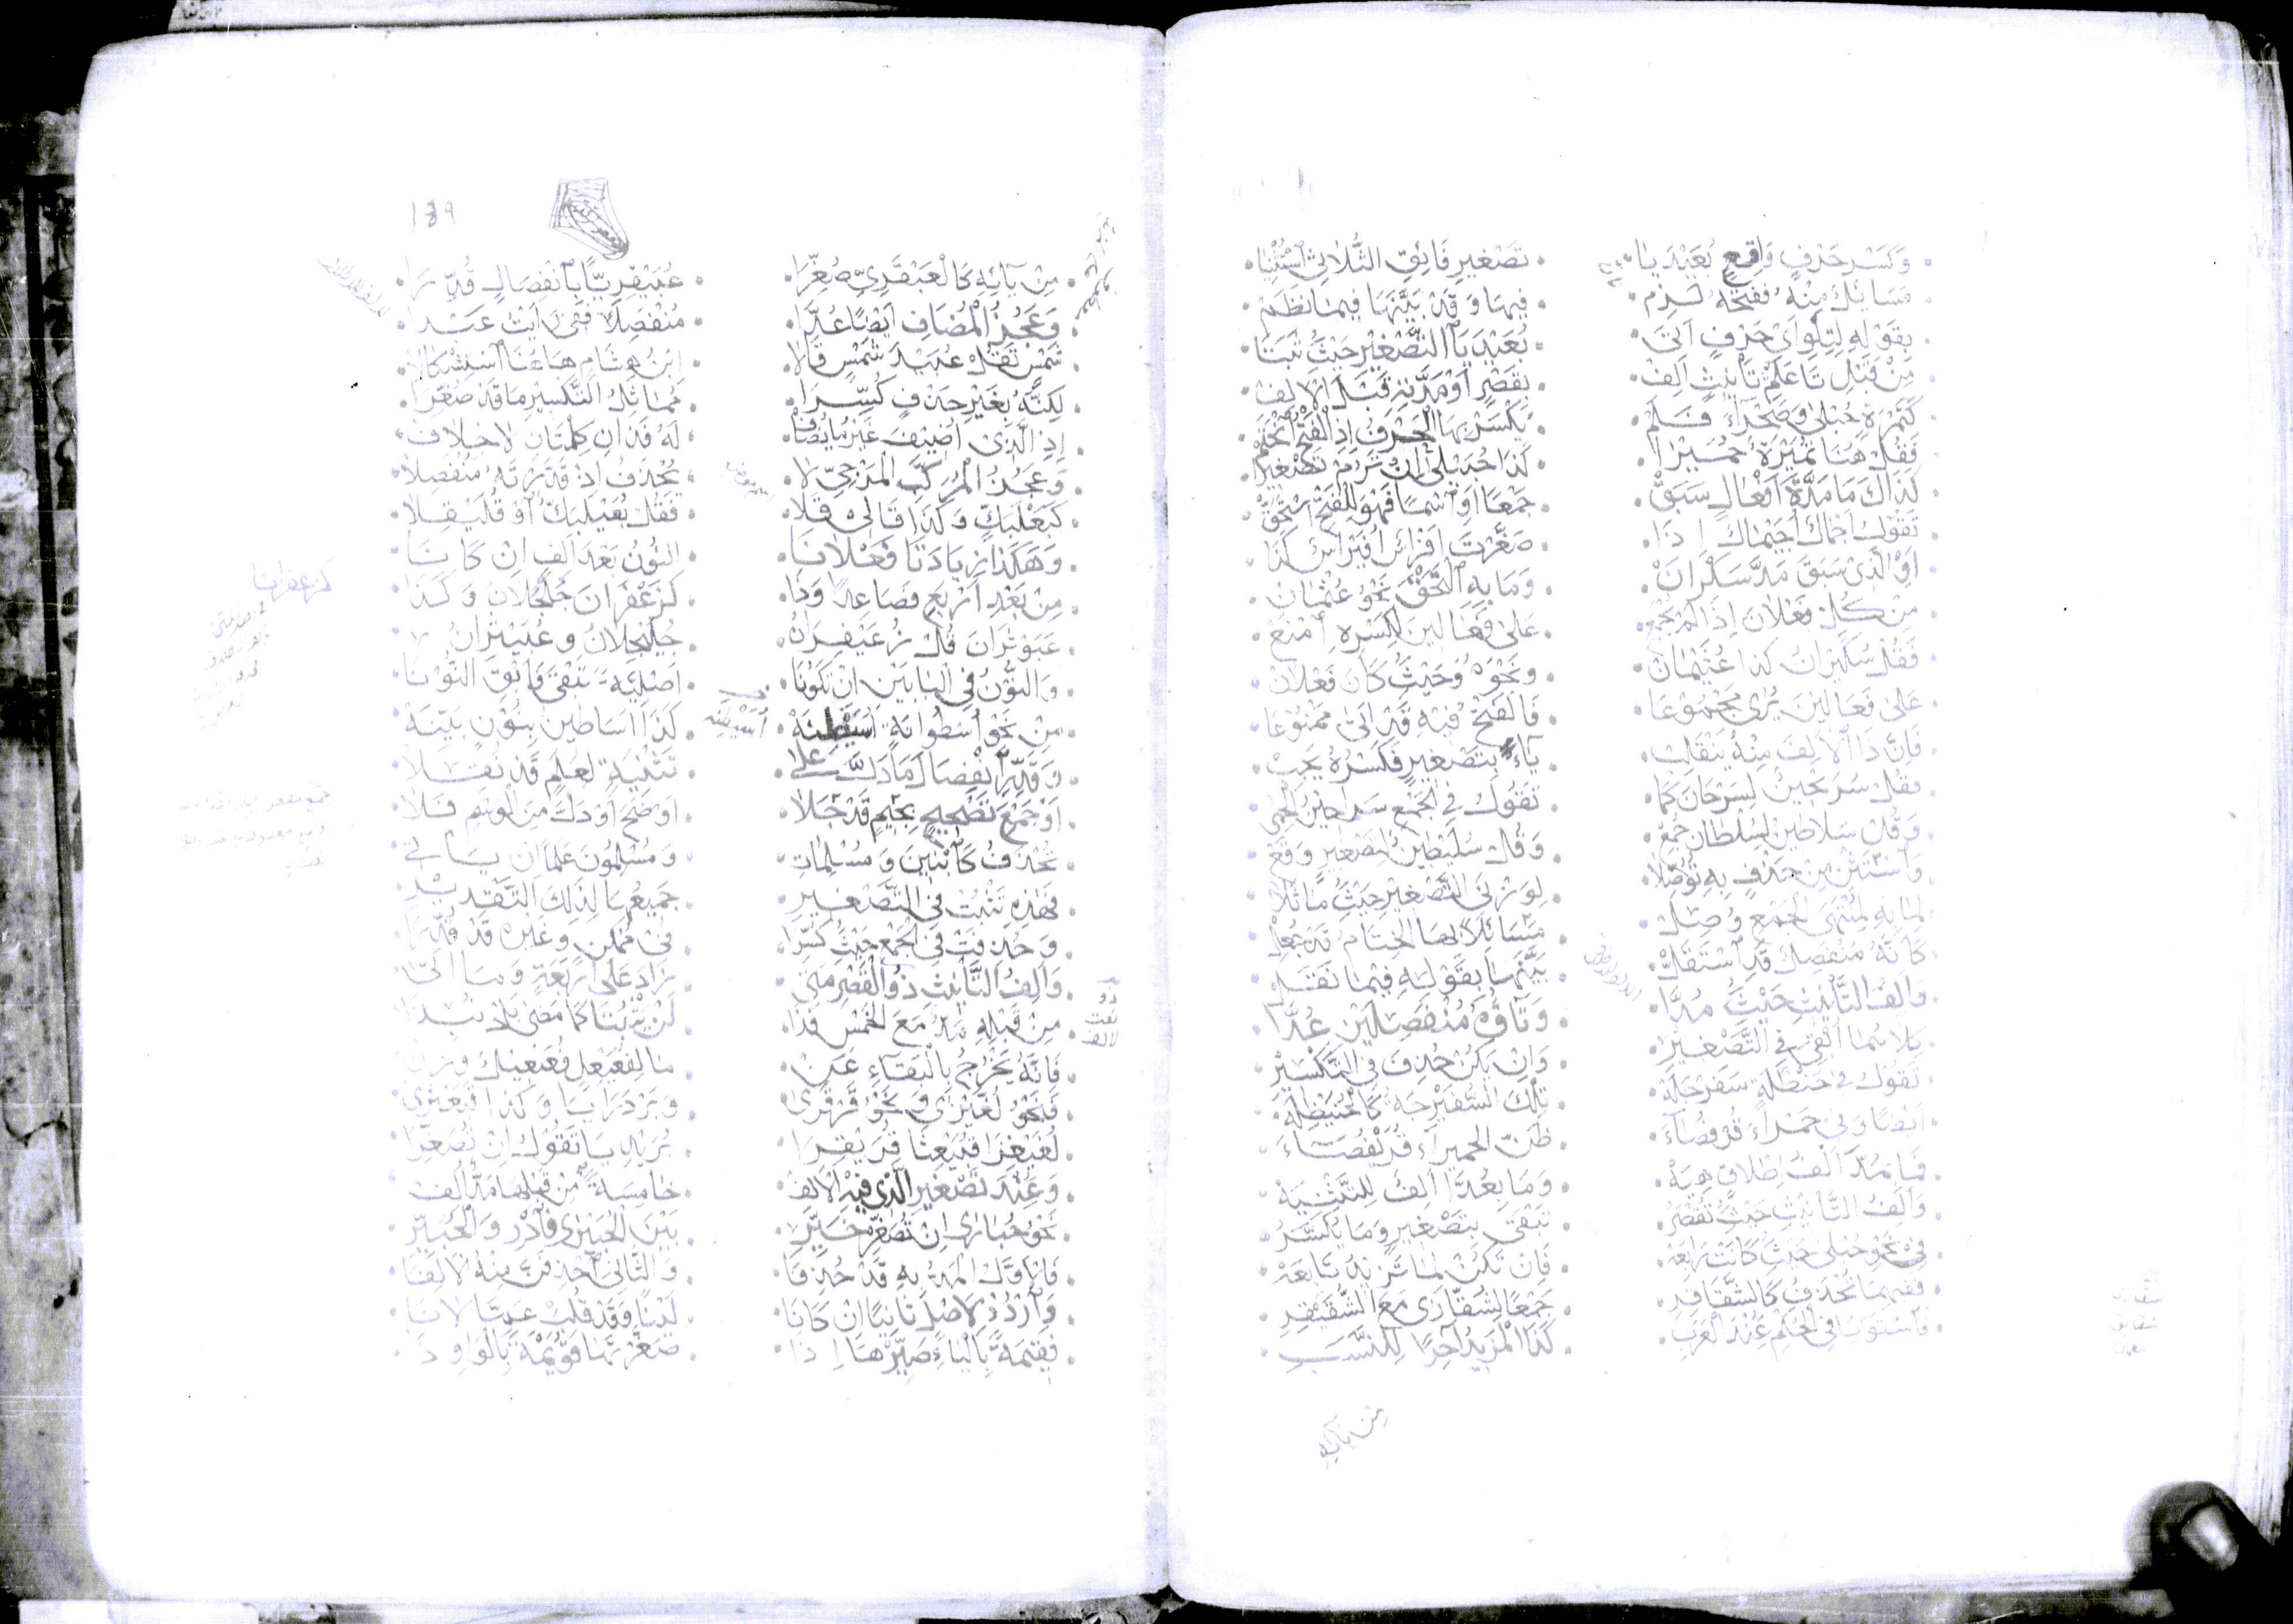 وَكَسْرَ حَرْفٍ وَاقِعٍ بُعَيْدَ يَا • تَصْغِيرِ فَائِقِ الثُّلَاثِي اسْتُثْنِيَا
مَسَائِلٌ مِنْهُ فَفَتْحُهُ لَزِمْ • فِيهَا وَقَدْ بَيَّنَهَا فِيمَا نَظَمْ
بِقَوْلِهِ لِتِلْوِ أَيْ حَرْفٍ أَتَى • بُعَيْدَ يَا التَّصْغِيرِ حَيْثُ ثَبَتَا
مِنْ قَبْلِ تَا عَلَمِ تَأْنِيثٍ أَلِفْ • بِقَصْرٍ أَوْ مَدَّتِهِ قَبْلَ الْأَلِفْ
كَثَمْرَةٍ حُبْلَى وَصَحْرَاءَ فَلَمْ • يُكْسَرْ بِهَا الْحَرْفُ إِذِ الْفَتْحُ انْحَتَمْ
فَقُلْ هُنَا تُمَيْرَةٌ حُمَيْرَا • كَذَا حُبَيْلَى إِنْ تَرُمْ تَصْغِيرَا
كَذَاكَ مَا مَدَّةَ أَفْعَالٍ سَبَقْ • جَمْعًا أَوِ اسْمًا فَهْوَ لِلْفَتْحِ اسْتَحَقّْ
تَقُولُ أَجْمَالٌ أُجَيْمَالٌ إِذَا • صَغَّرْتَ أَفْرَاسٌ أُفَيْرَاسٌ كَذَا
أَوِ الَّذِي سَبَقَ مَدَّ سَكْرَانْ • وَمَا بِهِ الْتَحَقَ نَحْوُ عُثْمَانْ
مِنْ كُلِّ فَعْلَانَ إِذَا لَمْ يُجْمَعِ • عَلَى فَعَالِينَ لِكَسْرِهِ امْنَعِ
فَقُلْ سُكَيْرَانُ كَذَا عُثَيْمَانْ • وَنَحْوُهُ وَحَيْثُ كَانَ فَعْلَانْ
عَلَى فَعَالِينَ يُرَى مَجْمُوعَا • فَالْفَتْحُ فِيهِ قَدْ أَتَى مَمْنُوعَا
فَإِنَّ ذَا الْأَلِفَ مِنْهُ يَنْقَلِبْ • يَاءً بِتَصْغِيرٍ فَكَسْرُهُ يَجِبْ
فَقُلْ سُرَيْحِينٌ لِسِرْحَانَ كَمَا • تَقُولُ فِي الْجَمْعِ سَرَاحِينُ الْحِمَى
وَقُلْ سَلَاطِينُ لِسُلْطَانٍ جُمِعْ • وَقُلْ سُلَيْطِينٌ لِتَصْغِيرٍ وَقَعْ
وَاسْتَثْنِ مِنْ حَذْفٍ بِهِ تُوُصِّلَا • لِوَزْنَيِ التَّصْغِيرِ حَيْثُ مَاثَلَا
لِمَا بِهِ لِمُنْتَهَى الْجَمْعِ وُصِلْ • مَسَائِلًا بِهَا الْخِتَامُ قَدْ جُعِلْ
كَأَنَّهُ مُنْفَصِلٌ قَدِ اسْتَقَلّْ • بَيَّنَهَا بِقَوْلِهِ فِيمَا نَقَلْ
وَأَلِفُ التَّأْنِيثِ حَيْثُ مُدَّا • وَتَاؤُهُ مُنْفَصِلَيْنِ عُدَّا
كِلَاهُمَا أُلْقِيَ فِي التَّصْغِيرْ • وَإِنْ يَكُنْ حُذِفَ فِي التَّكْسِيرْ
تَقُولُ فِي حَنْظَلَةٍ سَفَرْجَلَهْ • تِلْكَ السُّفَيْرِجَةُ كَالْحُنَيْظِلَهْ
أَيْضًا وَفِي حَمْرَاءَ قُرْفُصَاءَ • ظَنَّ الْحُمَيْرَاءَ قُرَيْفِصَاءَ
فَمَا بِمُدَّا أَلِفُ إِطْلَاقٍ هِيَهْ • وَمَا بِعُدَّا أَلِفٌ لِلتَّثْنِيَهْ
وَأَلِفُ التَّأْنِيثِ حَيْثُ تُقْصَرُ • تَبْقَى بِتَصْغِيرٍ وَمَا يُكَسَّرُ
فِي نَحْوِ حُبْلَى حَيْثُ كَانَتْ رَابِعَهْ • فَإِنْ تَكُنْ لِمَا تَزِيدُ تَابِعَهْ
فَفِيهِمَا تُحْذَفُ كَالشَّقَاقِرِ • جَمْعًا لِشُقَّارَى مَعَ الشُّقَيْقِرِ
فَاسْتَوَيَا فِي الْحُكْمِ عِنْدَ الْعَرَبِ • كَذَا الْمَزِيدُ آخِرًا لِلنَّسَبِ
مِنْ يَائِهِ
189
مِنْ يَائِهِ كَالْعَبْقَرِيِّ صُغِّرَا • عُبَيْقِرِيًّا بِانْفِصَالٍ قُدِّرَا
وَعَجُزُ الْمُضَافِ أَيْضًا عُدَّا • مُنْفَصِلًا فَفِي رَأَيْتُ عَبْدَا
شَمْسٍ تَقُلْ عُبَيْدَ شَمْسٍ قَالَا • ابْنُ هِشَامٍ هَاهُنَا اسْتِشْكَالَا
لَكِنَّهُ بِغَيْرِ حَذْفٍ كُسِّرَا • مُمَاثِلُ التَّكْسِيرِ مَا قَدْ صُغِّرَا
إِذِ الَّذِي أُضِيفَ غَيْرُ مَا يُضَافْ • لَهُ فَذَانِ كِلْمَتَانِ لَا خِلَافْ
وَعَجُزُ الْمُرَكَّبِ الْمَزْجِيِّ لَا • تُحْذَفُ إِذْ قَدَّرْتَهُ مُنْفَصِلَا
كَبَعْلَبَكَّ وَكَذَا قَالِي قَلَا • فَقُلْ بُعَيْلِبَكُّ أَوْ قُلَيْقِلَا
وَهَكَذَا زِيَادَتَا فَعْلَانَا • النُّونُ بَعْدَ أَلِفٍ إِنْ كَانَا
مِنْ بَعْدِ أَرْبَعٍ فَصَاعِدًا وَذَا • كَزَعْفَرَانَ جُلْجُلَانَ وَكَذَا
عَبَوْثَرَانَ قُلْ زُعَيْفِرَانُ • جُلَيْجِلَانُ وَعُبَيْثِرَانُ
وَالنُّونُ فِي الْبَابَيْنِ إِنْ تَكُونَا • أَصْلِيَّةً تَبْقَى فَأَبْقِ النُّونَا
مِنْ نَحْوِ أُسْطُوَانَةٍ أُسَيْطِنَهْ • كَذَا أَسَاطِينُ بِنُونٍ بَيِّنَهْ
وَقَدِّرِ انْفِصَالَ مَا دَلَّ عَلَى • تَثْنِيَةٍ لِعَلَمٍ قَدْ نُقِلَا
أَوْ جَمْعِ تَصْحِيحٍ بِجِيمٍ قَدْ جَلَا • أَوْضَحَ أَوْ دَلَّ مِنَ الْوَسْمِ فَلَا
تُحْذَفُ كَاثْنَيْنِ وَمُسْلِمَاتِ • وَمُسْلِمُونَ عَلَمًا إِنْ يَأْتِي
فَهَذِهِ تَثْبُتُ فِي التَّصْغِيرِ • جَمِيعُهَا لِذَلِكَ التَّقْدِيرِ
وَحُذِفَتْ فِي الْجَمْعِ حَيْثُ كُسِّرَا • فِي مُمْكِنٍ وَغَيْرُهُ قَدْ قُدِّرَا
وَأَلِفُ التَّأْنِيثِ ذُو الْقَصْرِ مَتَى • زَادَ عَلَى أَرْبَعَةٍ وَمَا أَتَى
مِنْ قَبْلِهِ مَدٌّ مَعَ الْخَمْسِ فَذَا • لَنْ يَثْبُتَا كَمَا مَضَى بَلْ نُبِذَا
فَإِنَّهُ يَخْرُجُ بِالْبَقَاءِ عَنْ • مِثَالِ فُعَيْعِلٍ فُعَيْعِيلٍ وَزَنْ
فَنَحْوُ لُغَّيْزَى وَنَحْوُ قَرْقَرَى • وَبَرْدَرَايَا وَكَذَا قَبَعْثَرَى
لُغَيْغِزًا قُبَيْعِثًا قُرَيْقِرَا • بُرَيْدِيًا تَقُولُ إِنْ تُصَغِّرَا
وَعِنْدَ تَصْغِيرِ الَّذِي فِيهِ الْأَلِفْ • خَامِسَةً مِنْ قَبْلِهَا مَدٌّ أُلِفْ
نَحْوُ حُبَارَى إِنْ تُصَغِّرْ خَيِّرِ • بَيْنَ الْحُبَيْرَى فَادْرِ وَالْحُبَيِّرِ
فَالْأَوَّلُ الْمَدُّ بِهِ قَدْ حُذِفَا • وَالثَّانِي احْذِفْ مِنْهُ لَا الْأَلِفَا
وَارْدُدْ لِأَصْلٍ ثَانِيًا إِنْ كَانَا • لَيْنًا فَقَدْ قُلِبَ عَمَّا لَانَا
فَقِيمَةٌ بِالْيَاءِ صَيِّرْهَا إِذَا • صَغَّرْتَهَا قُوَيْمَةً بِالْوَاوِ ذَا